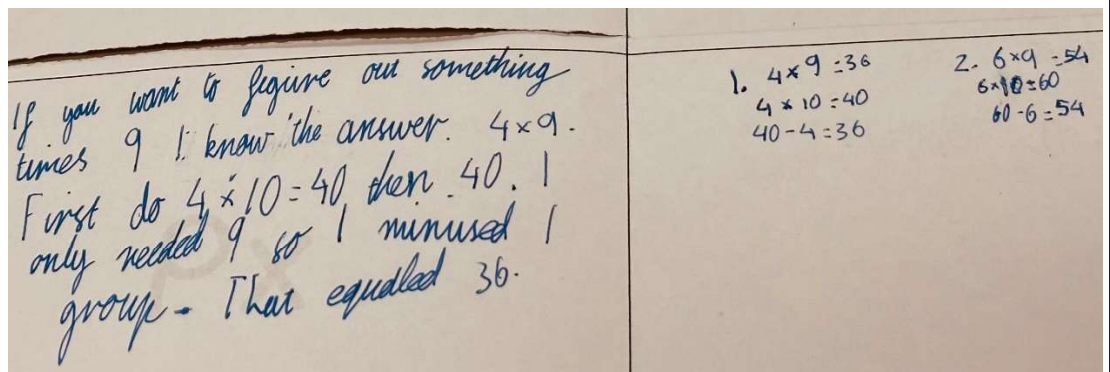 If you want to fegiure out something
times 9 I know the answer. 4×9.
First do 4×10=40 then 40. I
only needed 9 so I minused 1
group. That equalled 36.
1. 4×9=36
4×10=40
40-4=36
2. 6×9=54
6×10=60
60-6=54